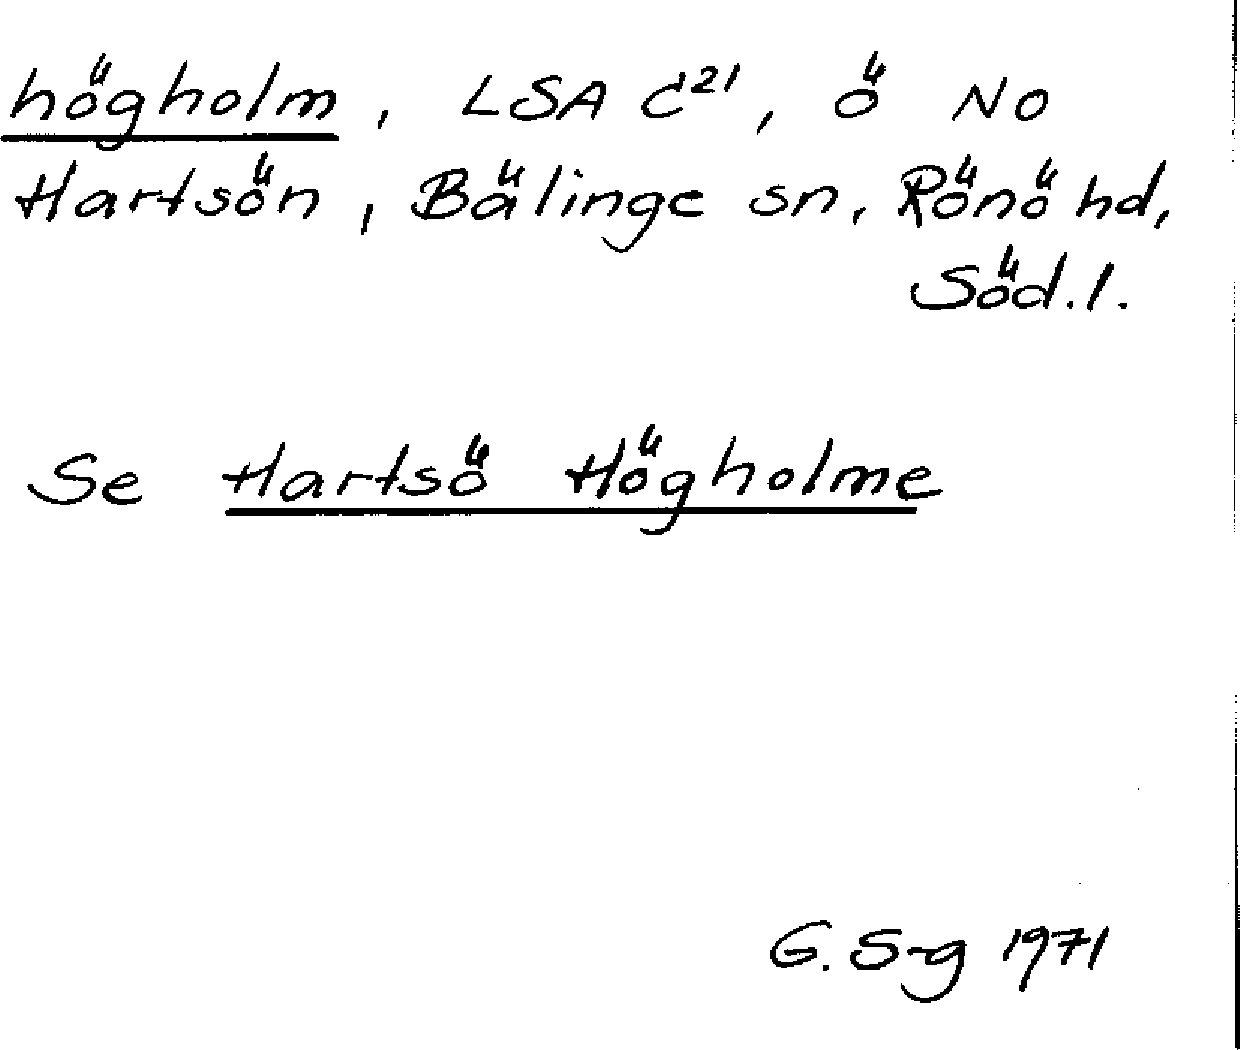 högholm, LSA C²¹, ö NO
Hartsön, Bälinge sn, Rönö hd,
Söd.l.
Se Hartsö Högholme
G. S-g 1971